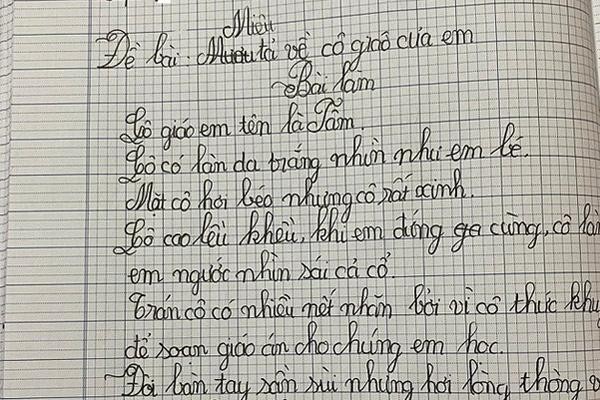 Miêu
Đề bài: Mươu tả về cô giáo của em
Bài làm
Cô giáo em tên là Tâm.
Cô có làn da trắng nhìn như em bé.
Mặt cô hơi béo nhưng cô rất xinh.
Cô cao lêu khêu, khi em đứng ga cùng, cô làm
em ngước nhìn sái cả cổ.
Trán cô có nhiều nết nhăn bởi vì cô thức khu
để soạn giáo án cho chúng em học.
Đôi bàn tay sần sùi nhưng hơi lòng thòng v